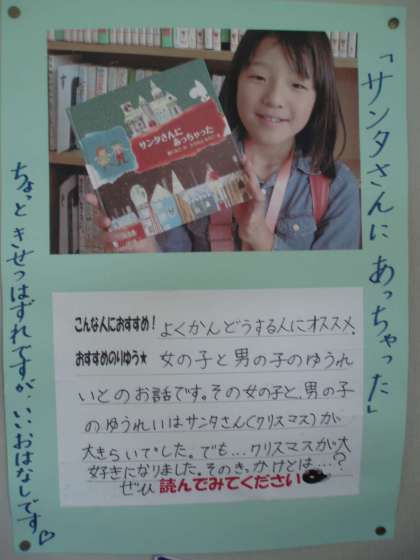 「サンタさんに あっちゃった」
サンタさんに
あっちゃった
こんな人におすすめ！よくかんどうする人にオススメ、
おすすめのりゆう★ 女の子と男の子のゆうれ
いとのお話です。その女の子と、男の子
のゆうれいはサンタさん(クリスマス)が
大きらいでした。でも…クリスマスが大
好きになりました。そのきっかけとは…？
ぜひ 読んでみてください
ちょっときせつはずれですが、いいおはなしです♡